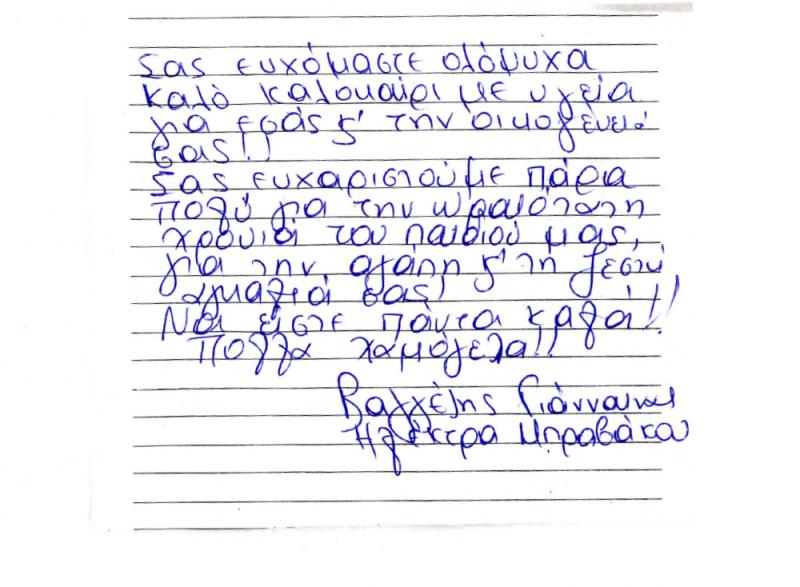 Σας ευχόμαστε ολόψυχα
καλό καλοκαίρι με υγεία
για εσάς κ' την οικογένειά
σας!!
Σας ευχαριστούμε πάρα
πολύ για την ωραιότατη
χρονιά του παιδιού μας,
για την αγάπη κ' τη ζεστή
αγκαλιά σας!
Να είστε πάντα καλά!!
Πολλά χαμόγελα!!
Βαγγέλης
Ηλέκτρα Μπραβάκου